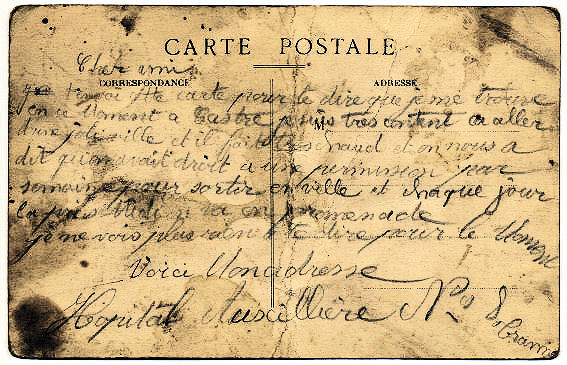 CARTE POSTALE
Cher ami
CORRESPONDANCE
ADRESSE
cette carte pour te dire que je me trouve
en ce Moment a Castre je suis tres content car aller
d'une jolie ville et il fait tres chaud et on nous a
M
dit qu'on avait droit a une permission par
semaine pour sortir en ville et chaque jour
la promenade
je ne vois plus rien a te dire pour le Moment
Voici Mon adresse
Hopital Auscillière No 8